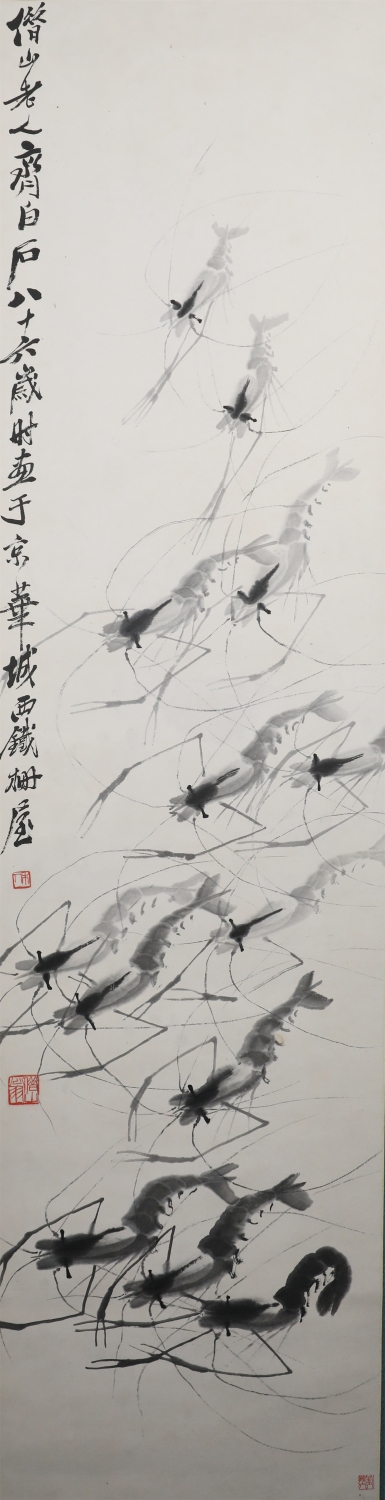 僭山老人齊白石八十六歲時畫于京華城西鐵柵屋